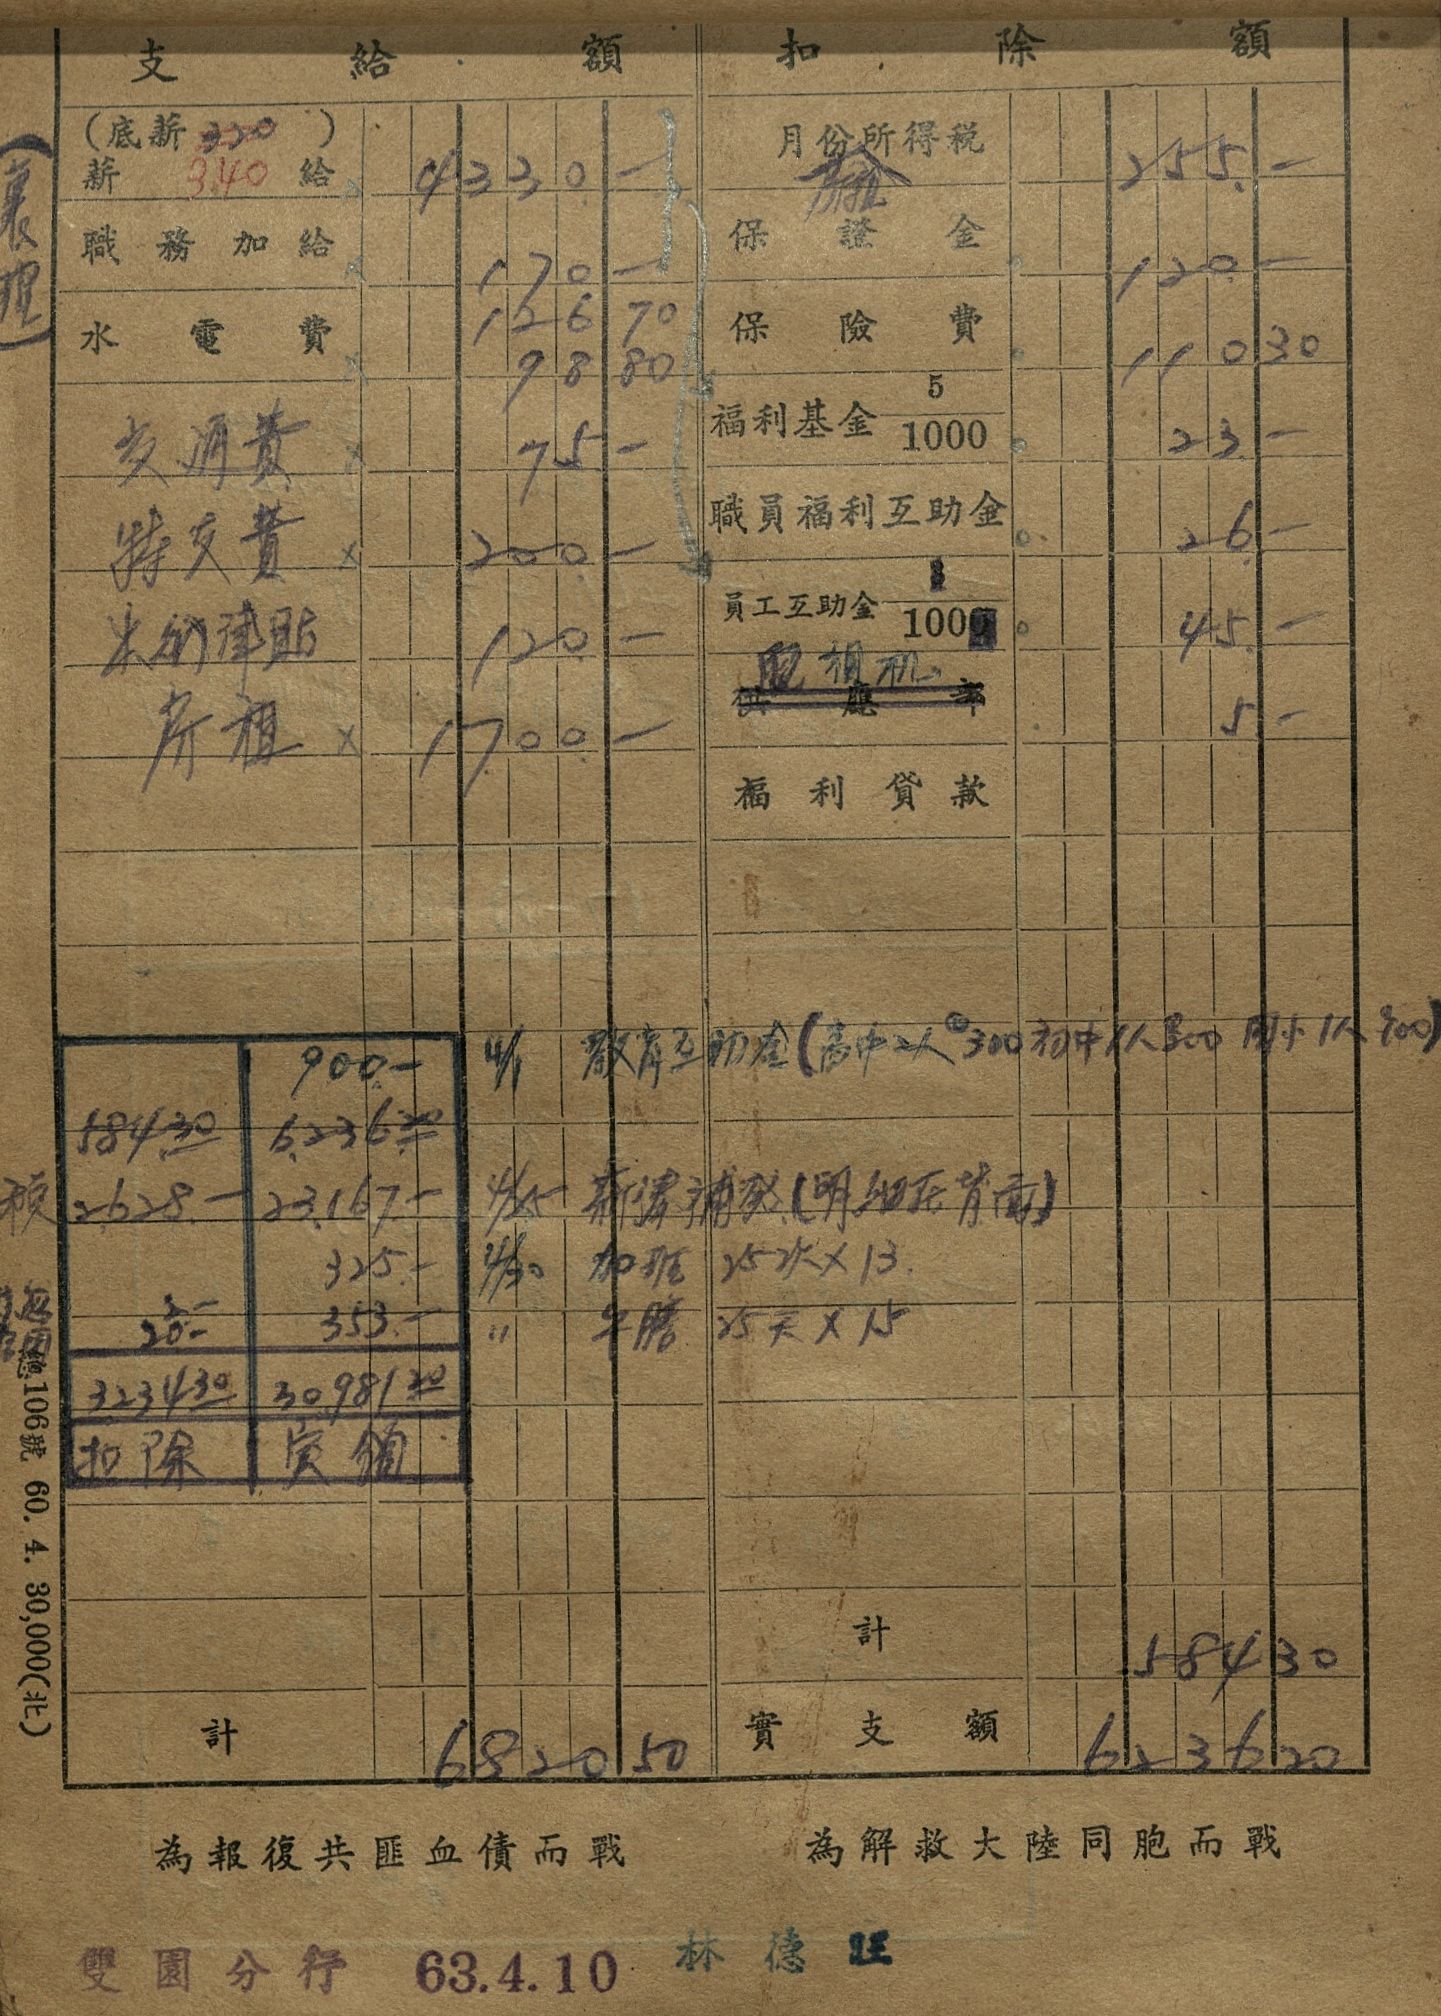 支給額
扣除額
(底薪 320 )
薪 340 給 4330.—
職務加給 170—
水電費 126 70
98 80
交通費 75.—
特支費 200.—
米代津貼 120.—
房租 1700.—
月份所得稅 255.—
保證金 120—
保險費 110 30
福利基金 5/1000 23.—
職員福利互助金 26.—
員工互助金 1000 45.—
照相机
供應部 5.—
福利貸款
900.— 4/1 教育互助金(高中2人@300 初中1人300 國小1人 )
584.30 6,236.20
2,628.— 23,167.— 4/25 薪津補發(明細在背面)
325.— 4/30 加班 25次×13.
20.— 353.— " 午膳 25天×15
3,234.30 30,981.20
扣除 實領
計 584 30
計 6820 50
實支額 6236 20
(襄理)
106號 60. 4. 30,000(北)
為報復共匪血債而戰
為解救大陸同胞而戰
雙園分行 63.4.10 林德旺